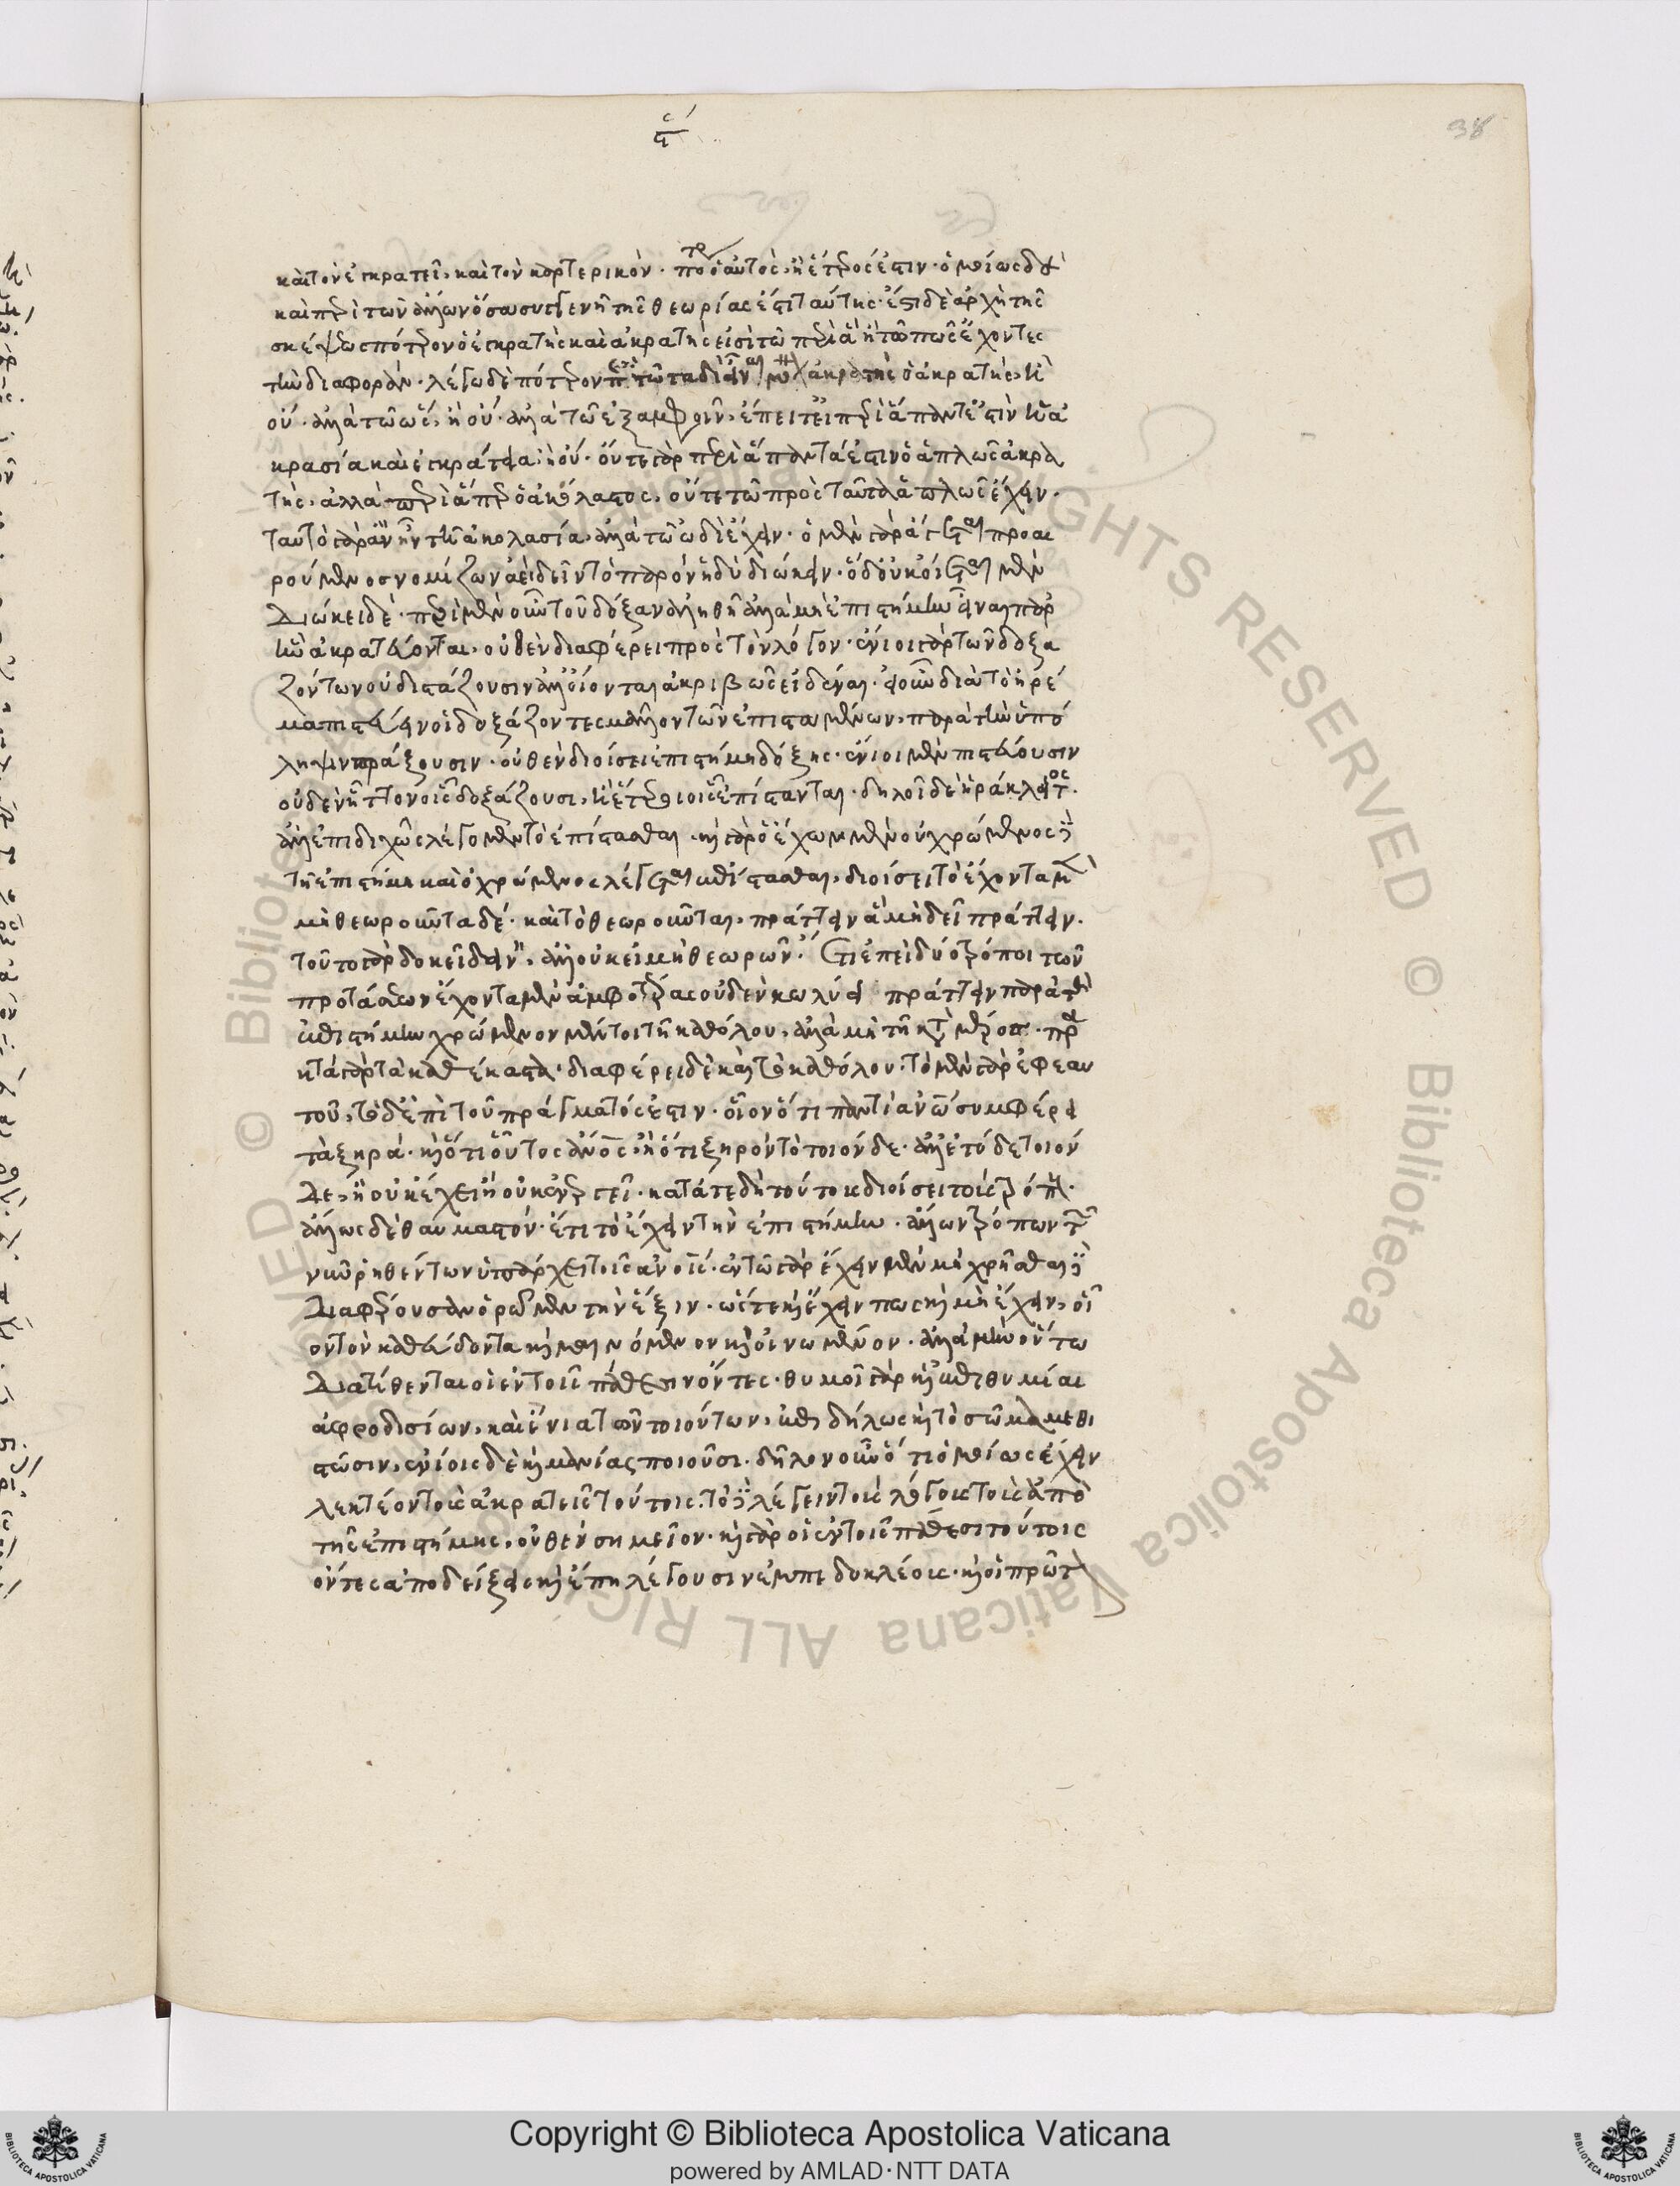 ϛʹ
38
καὶ τὸν ἐγκρατεῖ, καὶ τὸν καρτερικὸν. πότερον ὁ αὐτὸς, ἢ ἕτερός ἐστιν. ὁμοίως δὲ
καὶ περὶ τῶν ἄλλων ὅσα συγγενῆ τῆς θεωρίας ἐστὶ ταύτης. ἔστι δὲ ἀρχὴ τῆς
σκέψεως πότερον ὁ ἐγκρατὴς καὶ ἀκρατής εἰσὶ τῷ περὶ ἃ ἢ τῷ πῶς ἔχοντες
τὴν διαφοράν. λέγω δὲ πότερον τῷ περὶ ταδὶ εἶναι μόνον ἀκρατὴς ὁ ἀκρατής, ἢ
οὔ. ἀλλὰ τῷ ὡς, ἢ οὔ. ἀλλὰ τῷ ἐξ ἀμφοῖν, ἔπειτ εἰ περὶ ἅπαντ ἐστὶν ἡ ἀ
κρασία καὶ ἐγκράτεια, ἢ οὔ. οὔτε γὰρ περὶ ἅπαντά ἐστιν ὁ ἁπλῶς ἀκρα
τής, ἀλλὰ περὶ ἅπερ ὁ ἀκόλαστος, οὔτε τῷ πρὸς ταῦτα ἁπλῶς ἔχειν.
ταυτὸ γὰρ ἂν ἦν τῇ ἀκολασίᾳ, ἀλλὰ τῷ ὡδὶ ἔχειν. ὁ μὲν γὰρ ἄγεται προαι
ρούμενος νομίζων ἀεὶ δεῖν τὸ παρὸν ἡδὺ διώκειν. ὁ δ οὐκ οἴεται μὲν
διώκει δέ. περὶ μὲν οὖν τοῦ δόξαν ἀληθῆ ἀλλὰ μὴ ἐπιστήμην εἶναι παρ
ἣν ἀκρατεύονται, οὐδὲν διαφέρει πρὸς τὸν λόγον. ἔνιοι γὰρ τῶν δοξα
ζόντων οὐ διστάζουσιν ἀλλ οἴονται ἀκριβῶς εἰδέναι. εἰ οὖν διὰ τὸ ἠρέ
μα πιστεύειν οἱ δοξάζοντες μᾶλλον τῶν ἐπισταμένων, παρὰ τὴν ὑπό
ληψιν πράξουσιν. οὐθὲν διοίσει ἐπιστήμη δόξης. ἔνιοι μὲν πιστεύουσιν
οὐδὲν ἧττον οἷς δοξάζουσι, ἢ ἕτεροι οἷς ἐπίστανται. δηλοῖ δὲ ἡράκλειτος.
ἀλλ ἐπὶ διχῶς λέγομεν τὸ ἐπίστασθαι. καὶ γὰρ ὁ ἔχων μὲν οὐ χρώμενος δὲ
τῇ ἐπιστήμῃ καὶ ὁ χρώμενος λέγεται ἐπίστασθαι, διοίσει τὸ ἔχοντα μὲν
μὴ θεωροῦντα δέ. καὶ τὸ θεωροῦντα, πράττειν ἃ μὴ δεῖ πράττειν.
τοῦτο γὰρ δοκεῖ δεινόν, ἀλλ οὐκ εἰ μὴ θεωρῶν. ἔτι ἐπεὶ δύο τρόποι τῶν
προτάσεων ἔχοντα μὲν ἀμφοτέρας οὐδὲν κωλύει πράττειν παρὰ τὴν
ἐπιστήμην χρώμενον μέντοι τῇ καθόλου, ἀλλὰ μὴ τῇ κατὰ μέρος. πρα
κτὰ γὰρ τὰ καθ έκαστα. διαφέρει δὲ καὶ τὸ καθόλου. τὸ μὲν γὰρ ἐφ εαυ
τοῦ, τὸ δ ἐπὶ τοῦ πράγματός ἐστιν. οἷον ὅτι παντὶ ἀνω συμφέρει
τὰ ξηρά. καὶ ὅτι οὗτος ἄνος, ἢ ὅτι ξηρὸν τὸ τοιόνδε. ἀλλ εἰ τόδε τοιόν
δε, ἢ οὐκ ἔχει ἢ οὐκ ἐνεργεῖ. κατά τε δὴ τούτους διοίσει τοὺς τρόπους.
ἄλλως δὲ θαυμαστόν. ἔτι τὸ ἔχειν τὴν ἐπιστήμην. ἄλλων τρόπων τῶν
νῦν ῥηθέντων ὑπάρχει τοῖς ἀνοις. ἐν τῷ γὰρ ἔχειν μὲν μὴ χρῆσθαι δὲ
διαφέρουσαν ὁρῶμεν τὴν ἕξιν. ὥστε καὶ ἔχειν πως καὶ μὴ ἔχειν, οἷ
ον τὸν καθεύδοντα καὶ μαινόμενον καὶ οἰνωμένον. ἀλλὰ μὴν οὕτω
διατίθενται οἱ ἐν τοῖς πάθεσιν ὄντες. θυμοὶ γὰρ καὶ ἐπιθυμίαι
ἀφροδισίων, καὶ ἔνια τῶν τοιούτων, ἐπιδήλως καὶ τὸ σῶμα μεθι
στᾶσιν, ἐνίοις δὲ καὶ μανίας ποιοῦσι. δῆλον οὖν ὅτι ὁμοίως ἔχειν
λεκτέον τοὺς ἀκρατεῖς τούτοις. τὸ δὲ λέγειν τοὺς λόγους τοὺς ἀπὸ
τῆς ἐπιστήμης, οὐθὲν σημεῖον. καὶ γὰρ οἱ ἐν τοῖς πάθεσι τούτοις
ὄντες ἀποδείξεις καὶ ἔπη λέγουσιν ἐμπεδοκλέους. καὶ οἱ πρῶτον
Copyright © Biblioteca Apostolica Vaticana
powered by AMLAD·NTT DATA